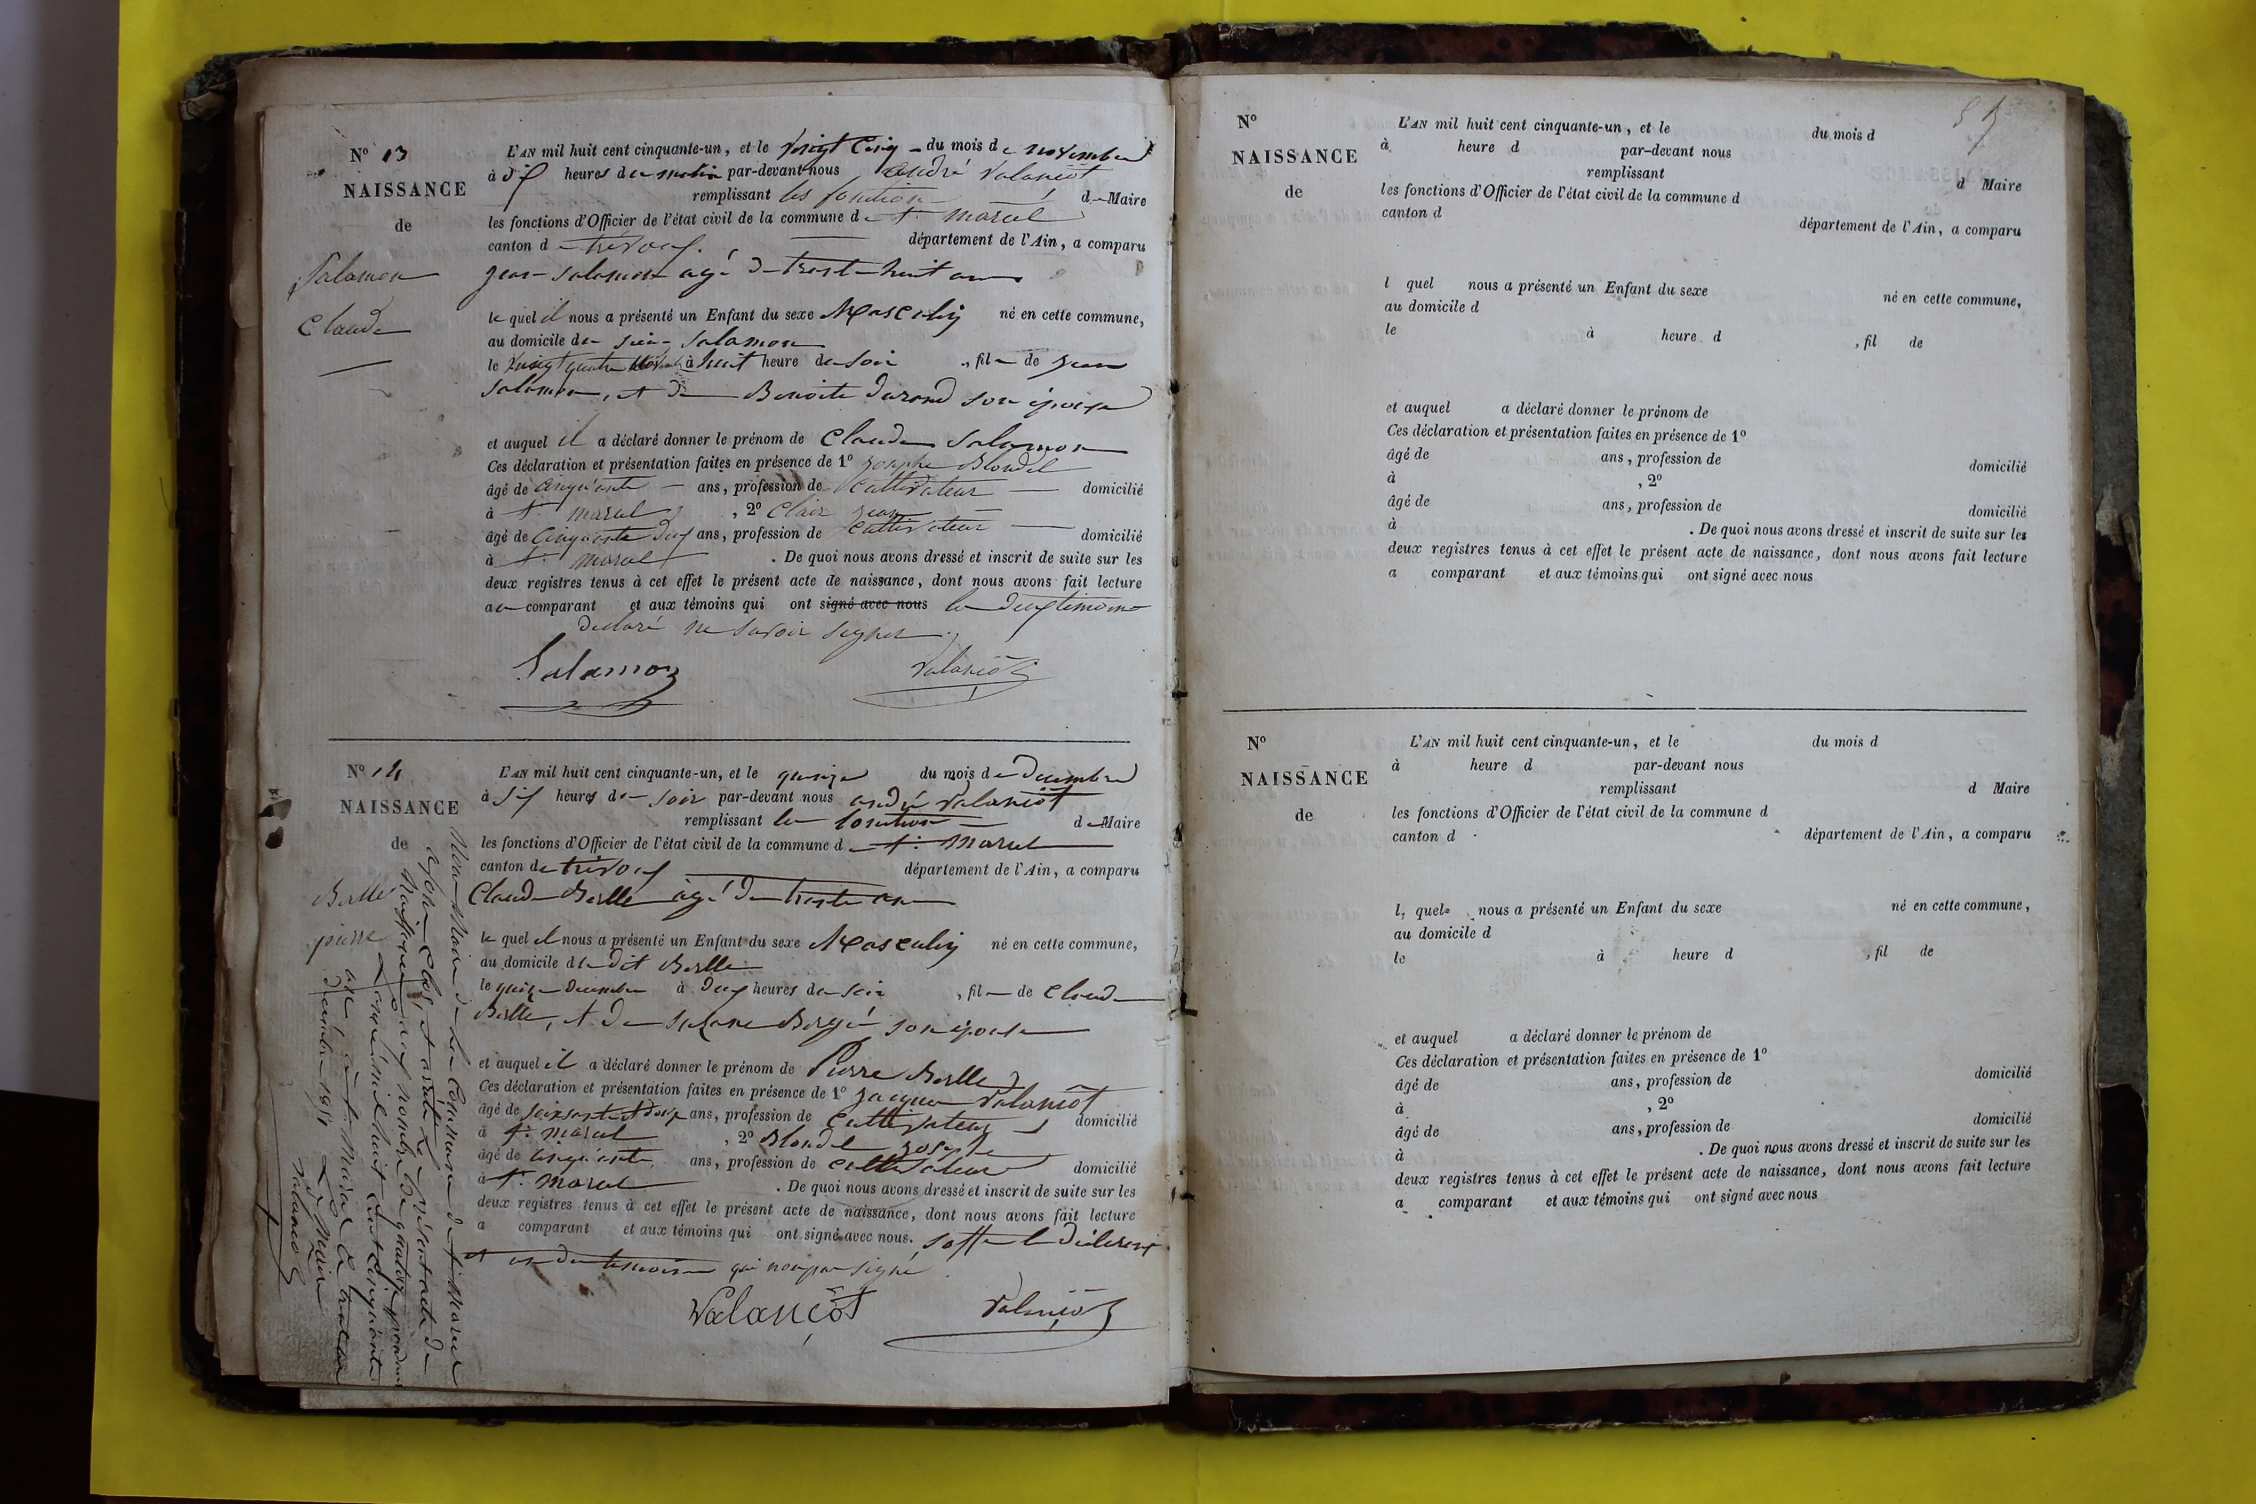 N° 13
NAISSANCE
de
Salamon
Claude
L'AN mil huit cent cinquante-un, et le vingt Cinq du mois de novembre
à dix heures du matin par-devant nous andré Valancôt
remplissant les fonction de Maire
les fonctions d'Officier de l'état civil de la commune de St. marcel
canton de trévoux département de l'Ain, a comparu
jean Salamon agé de trente huit ans
le quel il nous a présenté un Enfant du sexe Masculin né en cette commune,
au domicile du sieur Salamon
le vingt quatre à huit heure du soir, fil de jean
Salamon, et de Benoite durand son épouse
et auquel il a déclaré donner le prénom de Claude Salamon
Ces déclaration et présentation faites en présence de 1° Josephe Blondel
âgé de Cinquante ans, profession de Cultivateur domicilié
à St marcel, 2° Clair jean
âgé de Cinquante deux ans, profession de Cultivateur domicilié
à St. marcel. De quoi nous avons dressé et inscrit de suite sur les
deux registres tenus à cet effet le présent acte de naissance, dont nous avons fait lecture
au comparant et aux témoins qui ont signé avec nous les deux temoins
declaré ne savoir signer
Salamon Valancôt
N° 14
NAISSANCE
de
Berlle
pierre
L'AN mil huit cent cinquante-un, et le quinze du mois de decembre
à six heures du soir par-devant nous andré Valancôt
remplissant les fonction de Maire
les fonctions d'Officier de l'état civil de la commune de St. marcel
canton de trévoux département de l'Ain, a comparu
Claude Berlle agé de trente ans
le quel il nous a présenté un Enfant du sexe Masculin né en cette commune,
au domicile du dit Berlle
le quinze decembre à deux heures du soir, fil de Claude
Berlle, et de son épouse
et auquel il a déclaré donner le prénom de Pierre Berlle
Ces déclaration et présentation faites en présence de 1° jacques Valancôt
âgé de soixante et douze ans, profession de Cultivateur domicilié
à St. marcel, 2° Blondel joseph
âgé de Cinquante ans, profession de Cultivateur domicilié
à St. marcel. De quoi nous avons dressé et inscrit de suite sur les
deux registres tenus à cet effet le présent acte de naissance, dont nous avons fait lecture
a comparant et aux témoins qui ont signé avec nous.
et un des temoins qui non pas signé
Valançôt Valançôt
Nous Maire de la Commune de St. Marcel
avons Clos et arrêté le présent acte de
Naissance au nombre de quatorze pendant
L'année mil huit cent cinquante
un à St. Marcel le trente un
decembre 1851
Le Maire
Valancôt
N°
NAISSANCE
de
L'AN mil huit cent cinquante-un, et le du mois d
à heure d par-devant nous
remplissant d Maire
les fonctions d'Officier de l'état civil de la commune d
canton d département de l'Ain, a comparu
l quel nous a présenté un Enfant du sexe né en cette commune,
au domicile d
le à heure d, fil de
et auquel a déclaré donner le prénom de
Ces déclaration et présentation faites en présence de 1°
âgé de ans, profession de domicilié
à, 2°
âgé de ans, profession de domicilié
à. De quoi nous avons dressé et inscrit de suite sur les
deux registres tenus à cet effet le présent acte de naissance, dont nous avons fait lecture
a comparant et aux témoins qui ont signé avec nous
N°
NAISSANCE
de
L'AN mil huit cent cinquante-un, et le du mois d
à heure d par-devant nous
remplissant d Maire
les fonctions d'Officier de l'état civil de la commune d
canton d département de l'Ain, a comparu
l quel nous a présenté un Enfant du sexe né en cette commune,
au domicile d
le à heure d, fil de
et auquel a déclaré donner le prénom de
Ces déclaration et présentation faites en présence de 1°
âgé de ans, profession de domicilié
à, 2°
âgé de ans, profession de domicilié
à. De quoi nous avons dressé et inscrit de suite sur les
deux registres tenus à cet effet le présent acte de naissance, dont nous avons fait lecture
a comparant et aux témoins qui ont signé avec nous